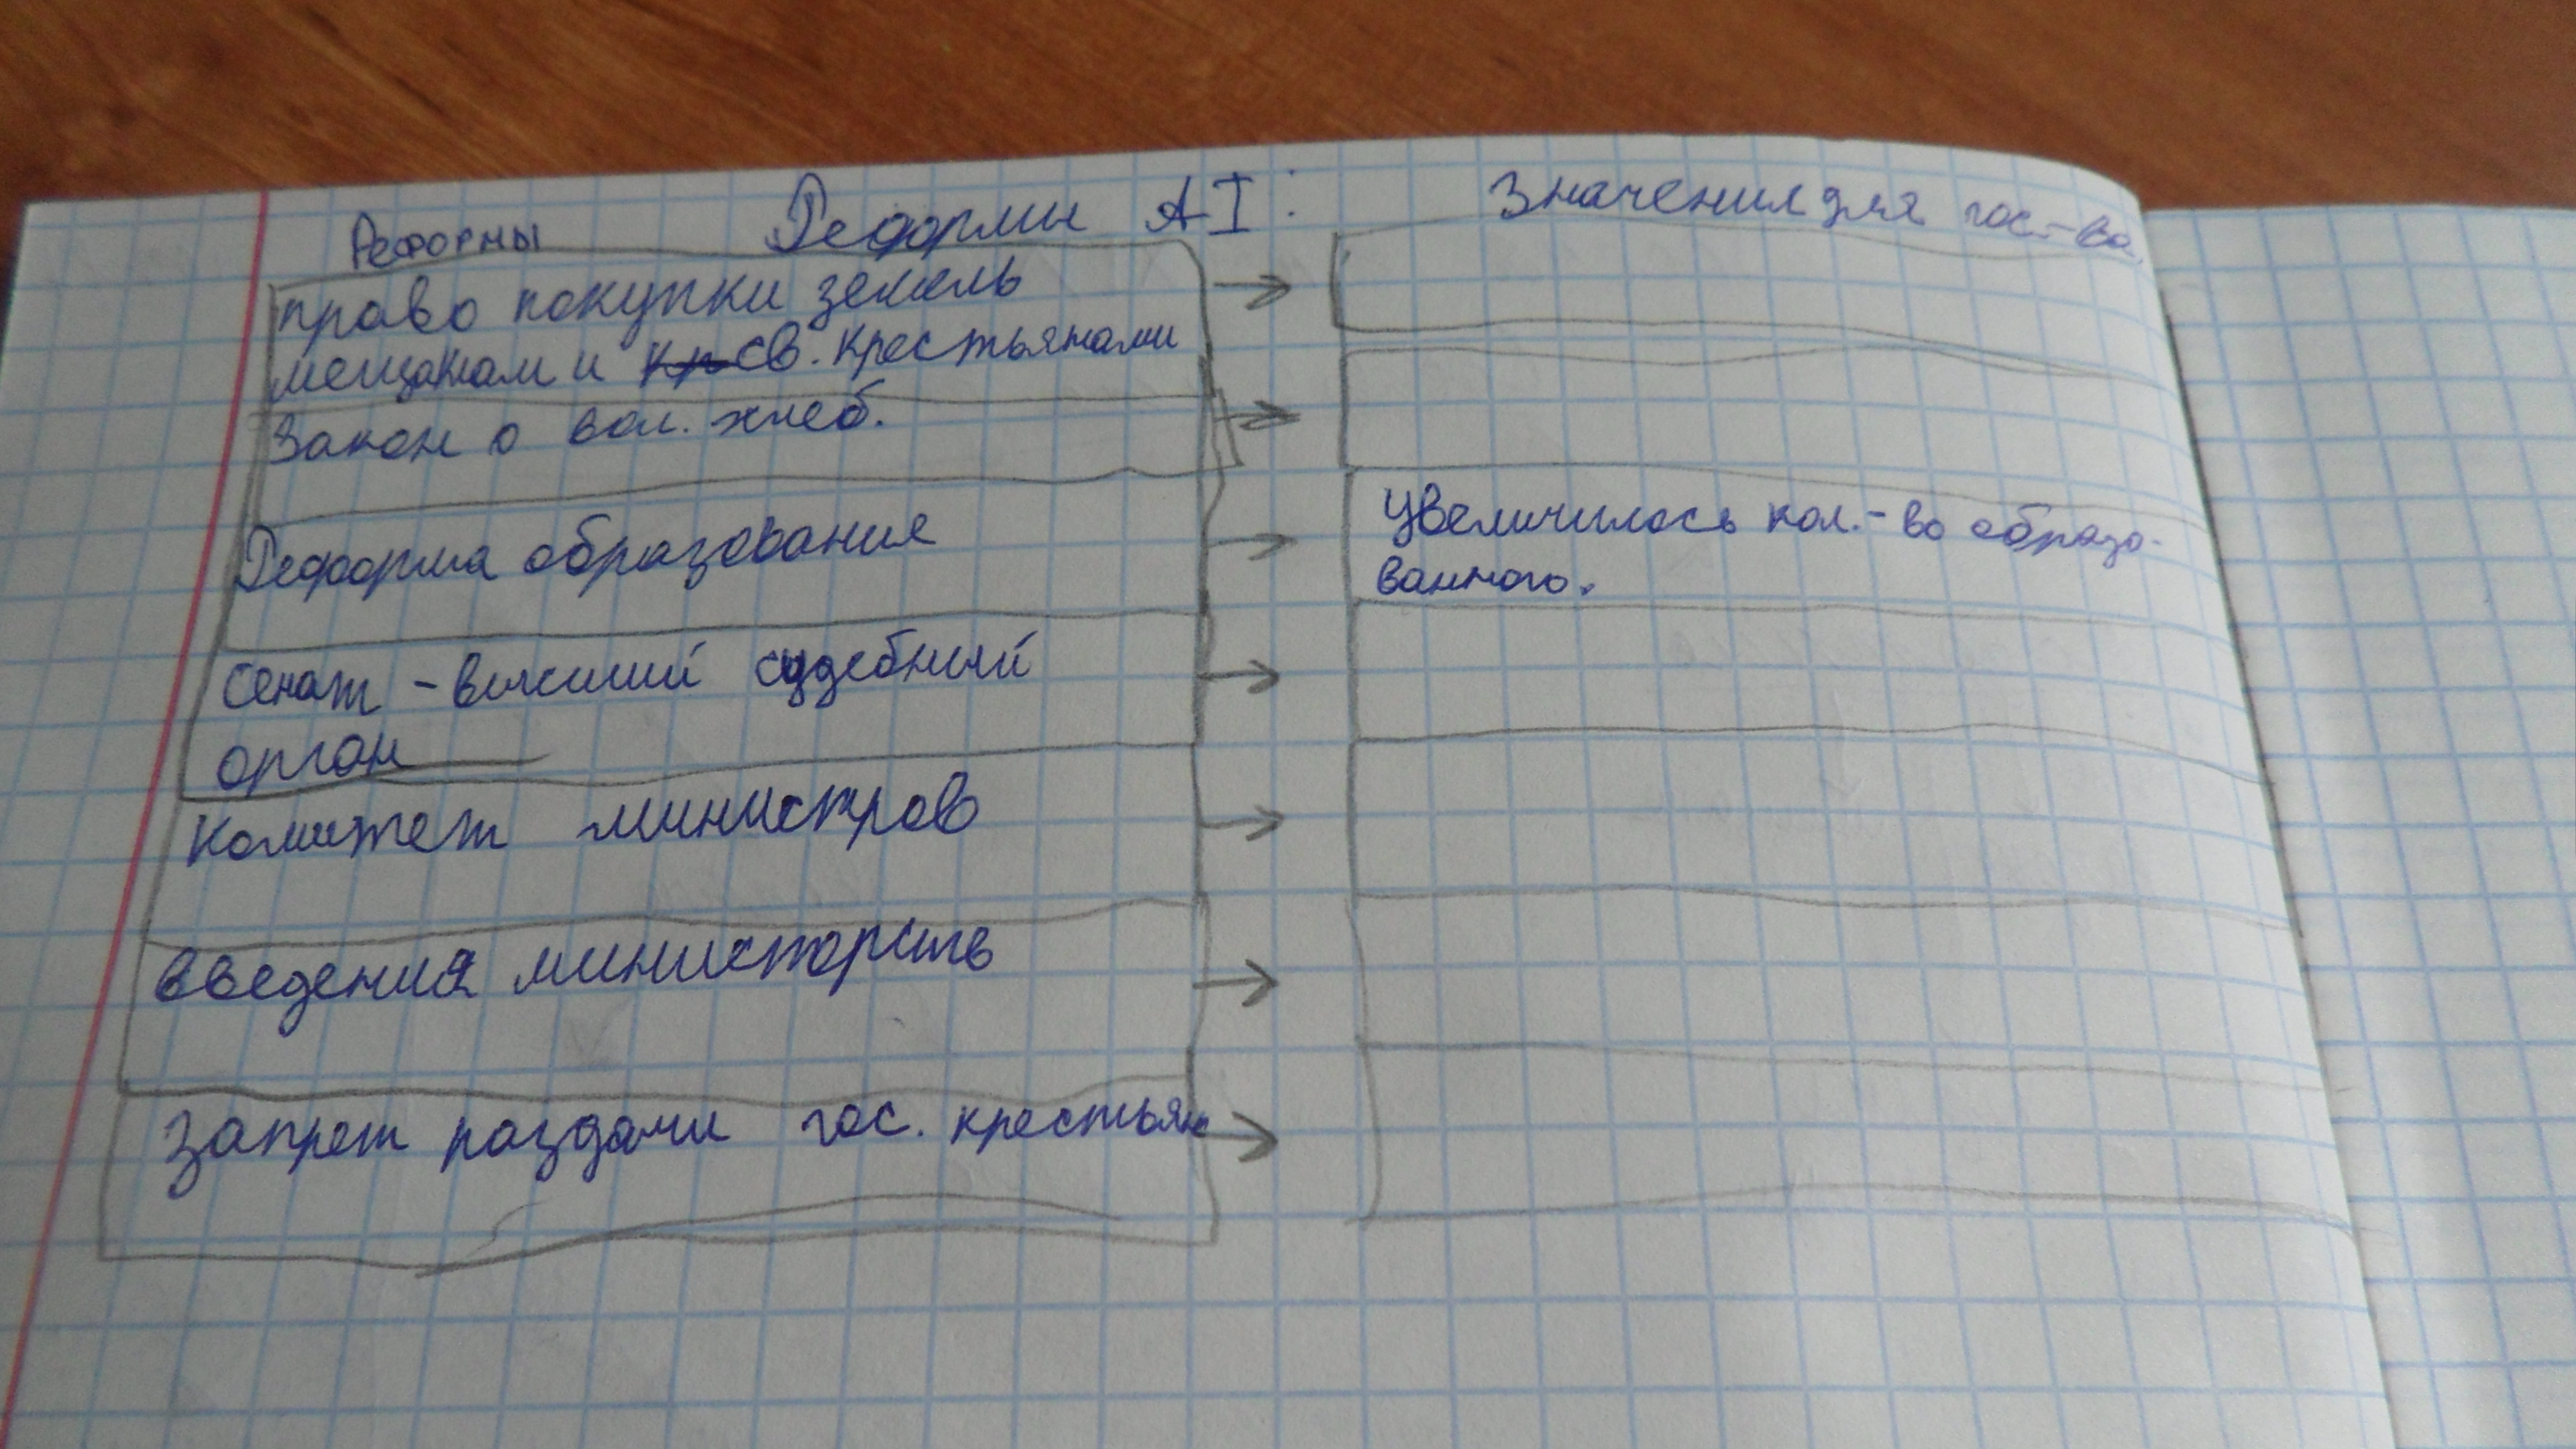 Реформы АI:
Реформы
Значения для гос-ва.
право покупки земель
мещанам и св. крестьянами
Закон о вол. хлеб.
Реформа образования
Увеличилось кол.-во образо-
ванного.
Сенат - высший судебный
орган
Комитет министров
введения министорств
Запрет раздачи гос. крестьян